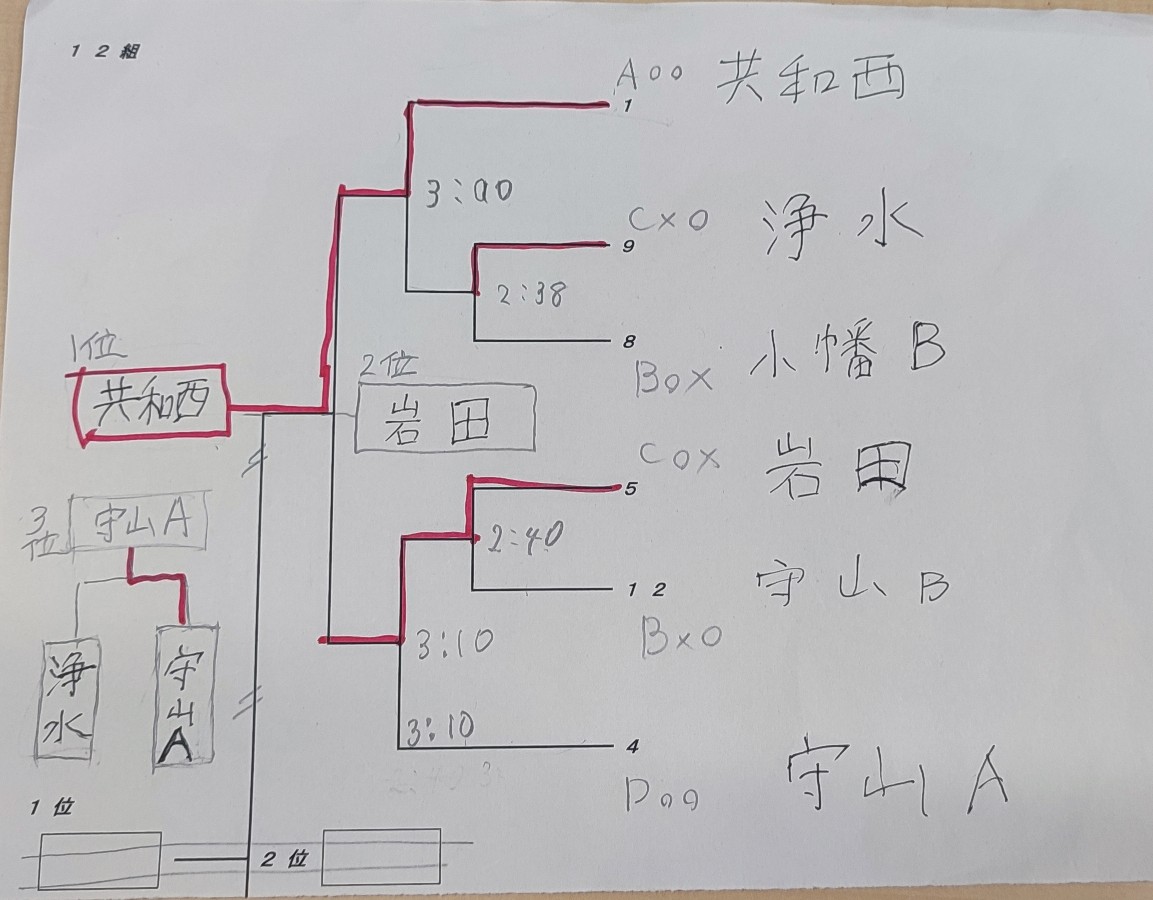 12組
A○○ 共和西
1
3:00
C×○ 浄水
9
2:38
8
B○× 小幡B
1位
共和西
2位
岩田
C○× 岩田
5
3位
守山A
2:40
12
守山B
B×○
3:10
浄水
守山A
3:10
4
D○○ 守山A
1位
2位